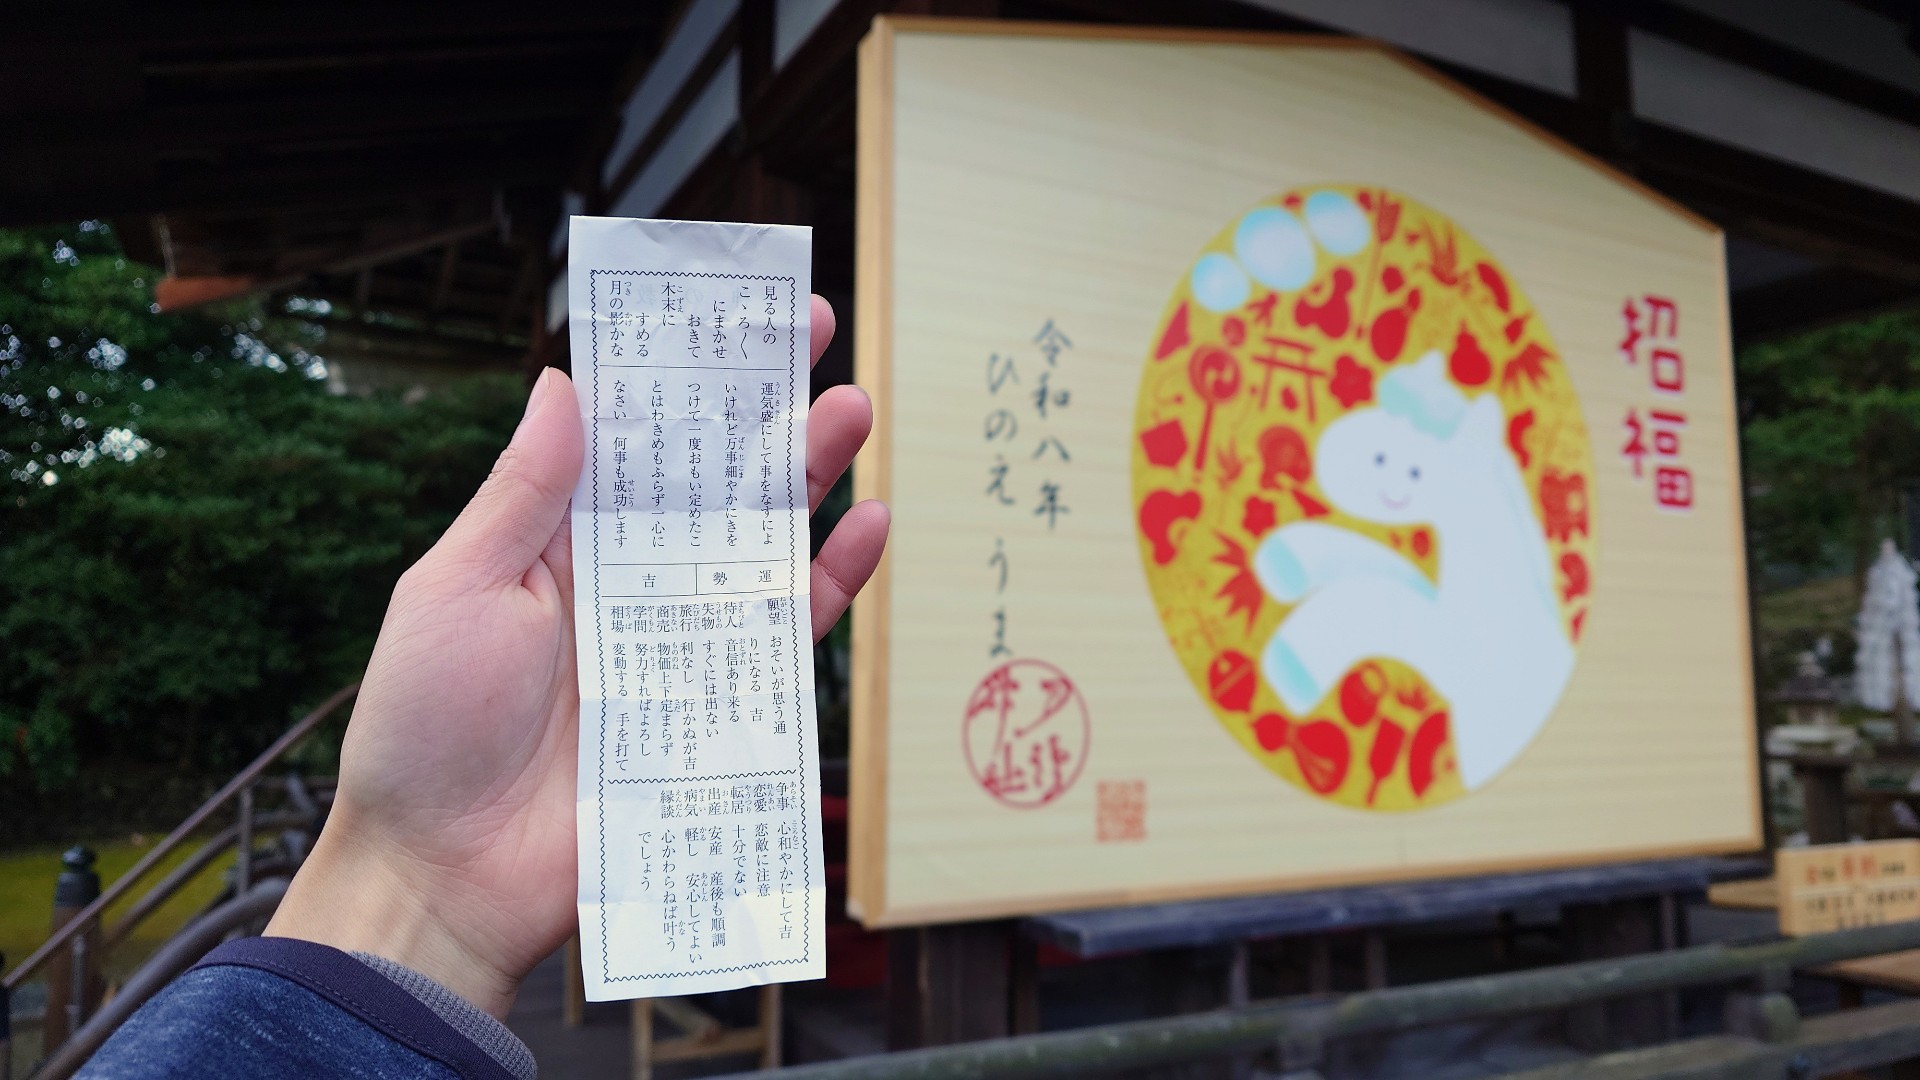 見る人の
こゝろ〳〵
にまかせ
おきて
木末に
すめる
月の影かな
運気盛にして事をなすによ
いけれど万事細やかにきを
つけて一度おもい定めたこ
とはわきめもふらず一心に
なさい 何事も成功します
運勢 吉
願望 おそいが思う通
りになる 吉
待人 音信あり来る
失物 すぐには出ない
旅行 利なし 行かぬが吉
商売 物価上下定まらず
学問 努力すればよろし
相場 変動する 手を打て
争事 心和やかにして吉
恋愛 恋敵に注意
転居 十分でない
出産 安産 産後も順調
病気 軽し 安心してよい
縁談 心かわらねば叶う
でしょう
招福
令和八年
ひのえ うま